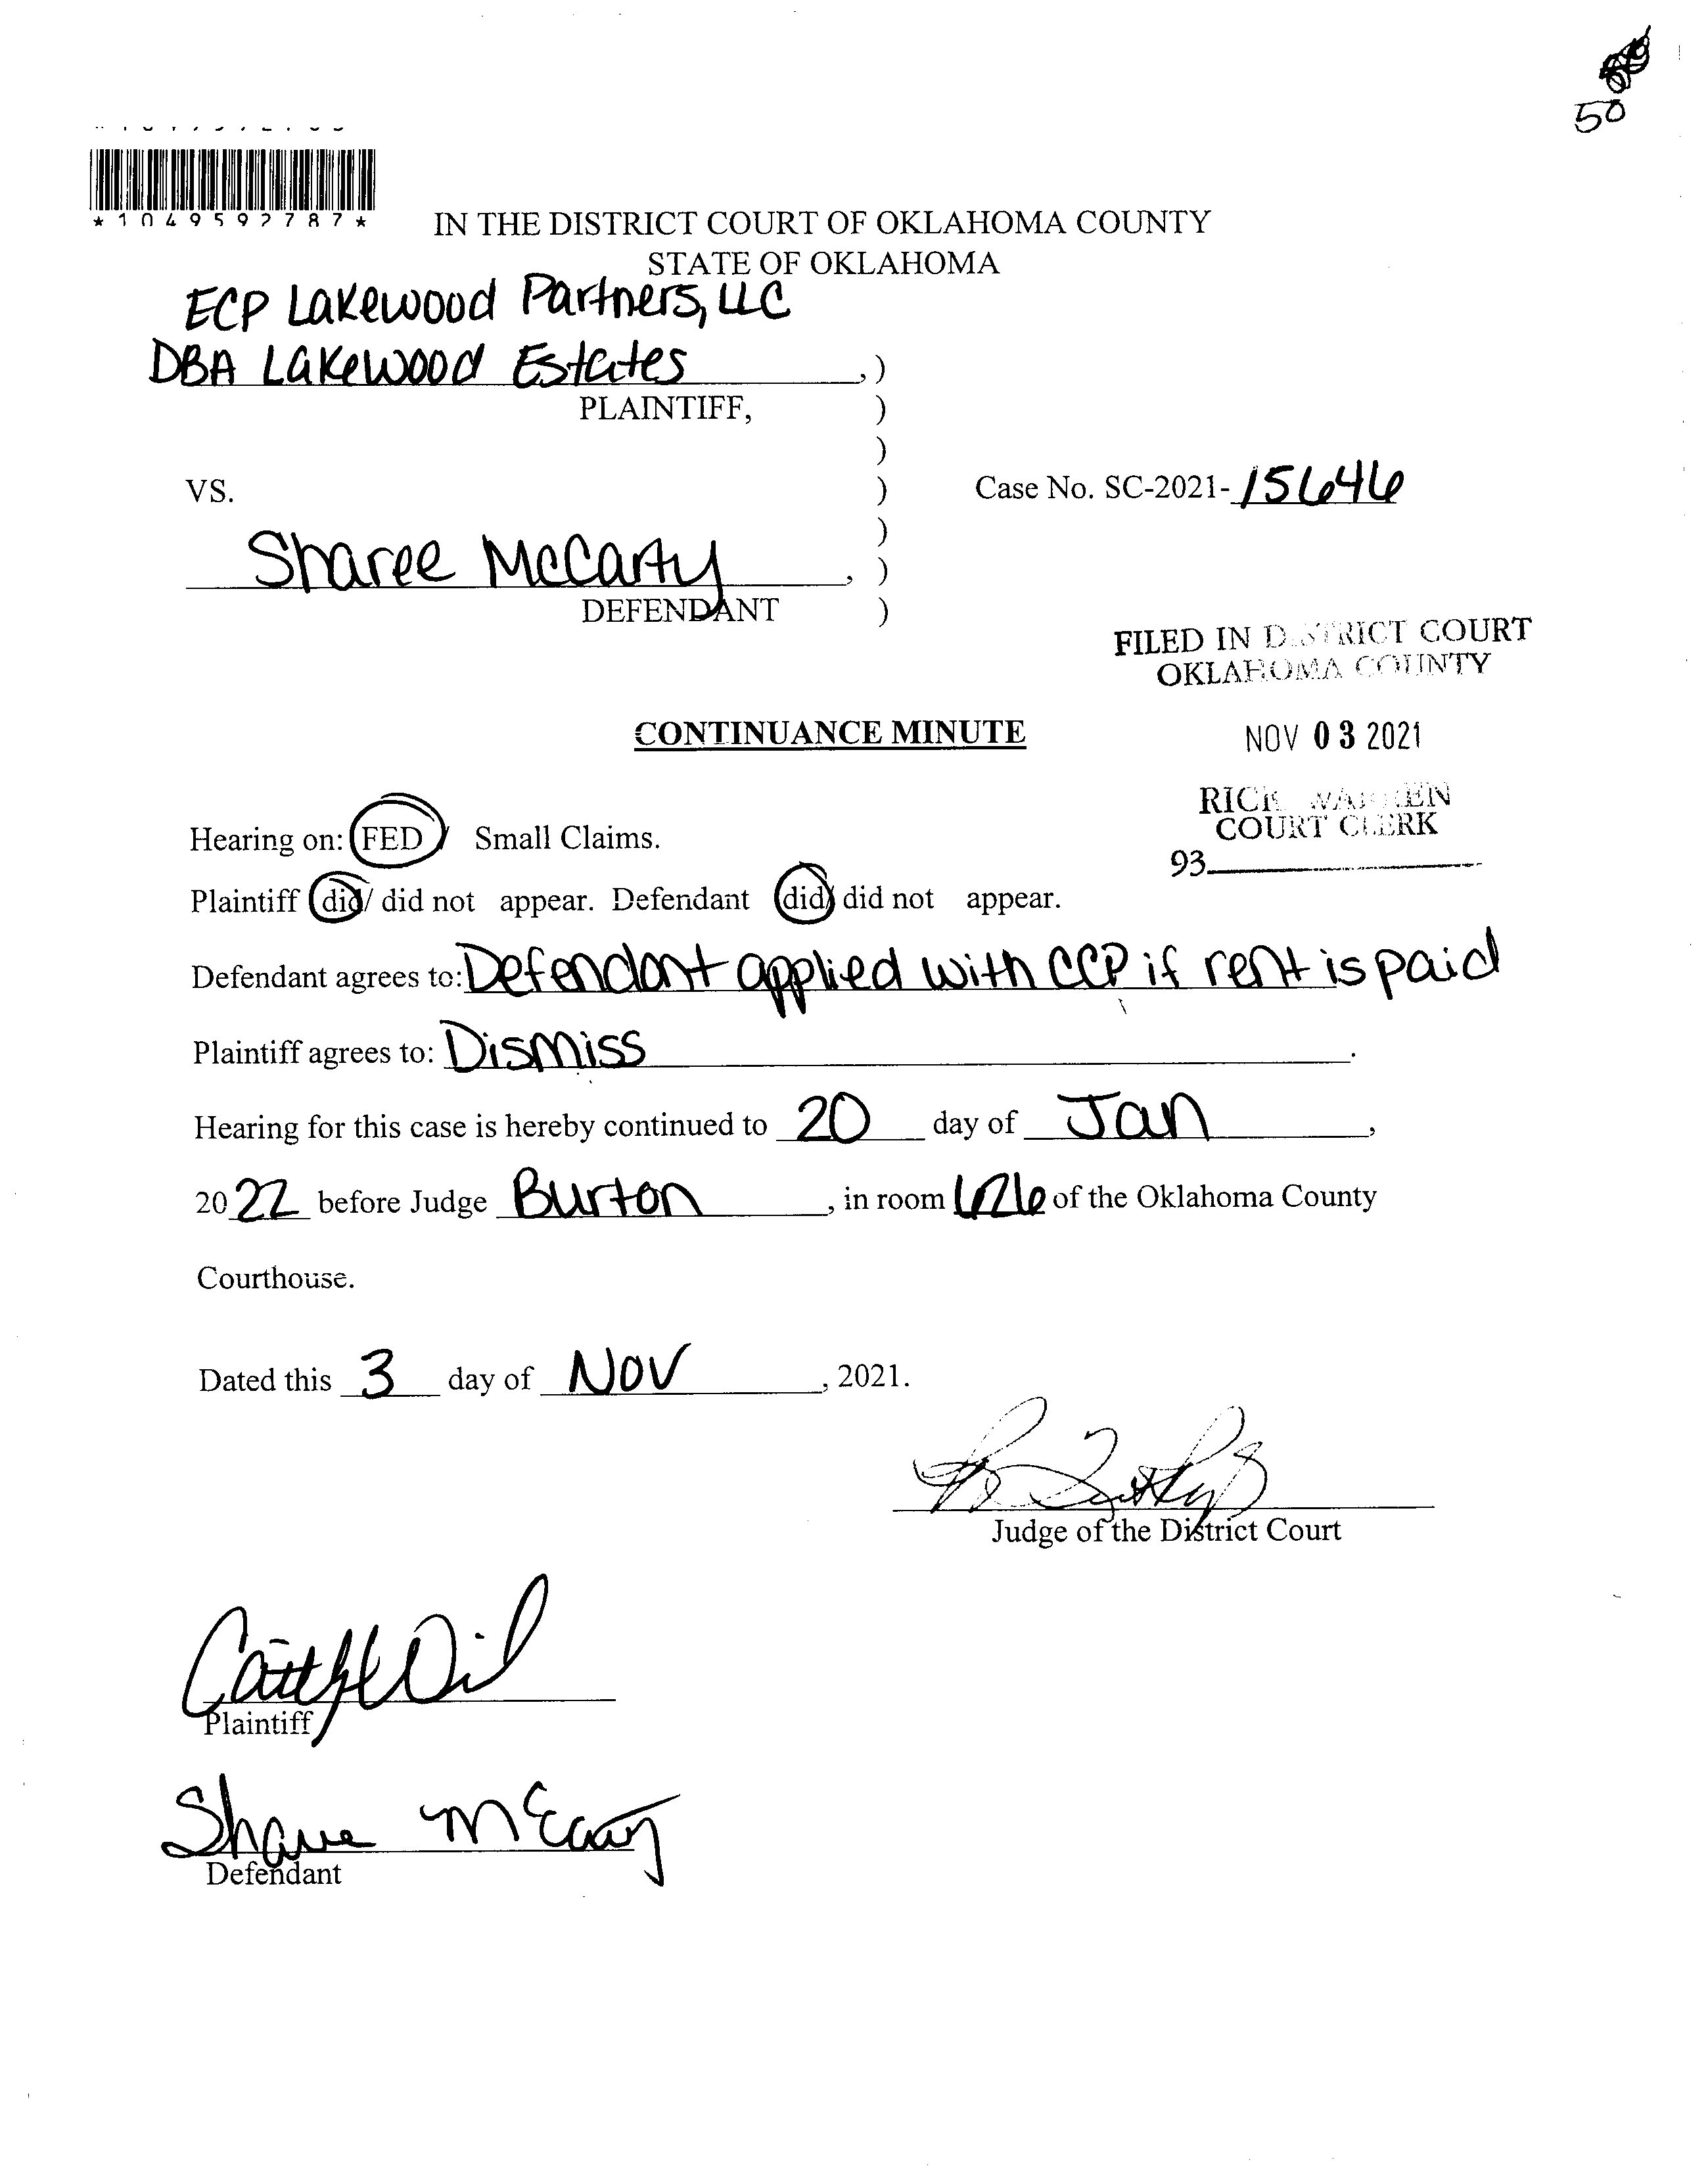 50
*1049592787*
IN THE DISTRICT COURT OF OKLAHOMA COUNTY
STATE OF OKLAHOMA
ECP Lakewood Partners, LLC
DBA Lakewood Estates , )
PLAINTIFF, )
)
VS. ) Case No. SC-2021- 15646
)
Sharee McCarty , )
DEFENDANT )
FILED IN DISTRICT COURT
OKLAHOMA COUNTY
CONTINUANCE MINUTE
NOV 03 2021
RICK WARREN
COURT CLERK
93
Hearing on: FED / Small Claims.
Plaintiff did / did not appear. Defendant did / did not appear.
Defendant agrees to: Defendant applied with CCP if rent is paid
Plaintiff agrees to: Dismiss .
Hearing for this case is hereby continued to 20 day of Jan ,
20 22 before Judge Burton , in room 626 of the Oklahoma County
Courthouse.
Dated this 3 day of Nov , 2021.
Judge of the District Court
Plaintiff
Sharee McCarty
Defendant